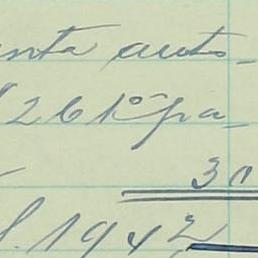 nta auto-
26 1º pa-
30
1942